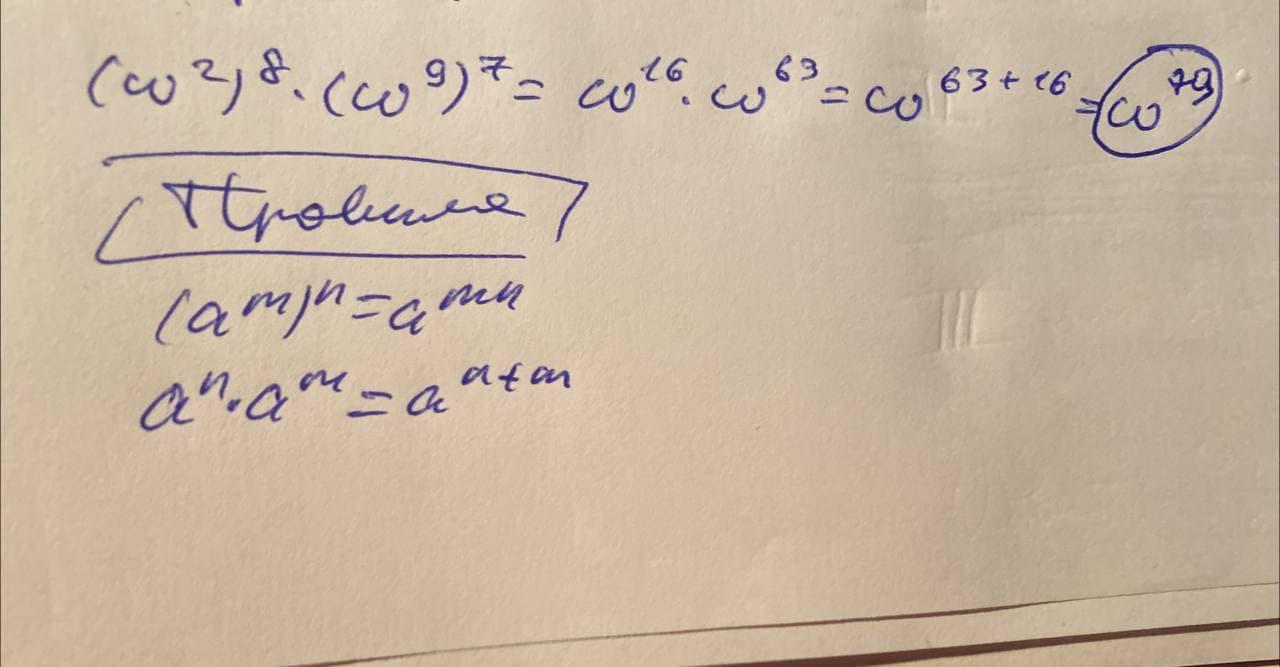 (ω²)⁸·(ω⁹)⁷= ω¹⁶·ω⁶³=ω⁶³⁺¹⁶=ω⁷⁹
Правила
(aᵐ)ⁿ=aᵐⁿ
aⁿ·aᵐ=aⁿ⁺ᵐ